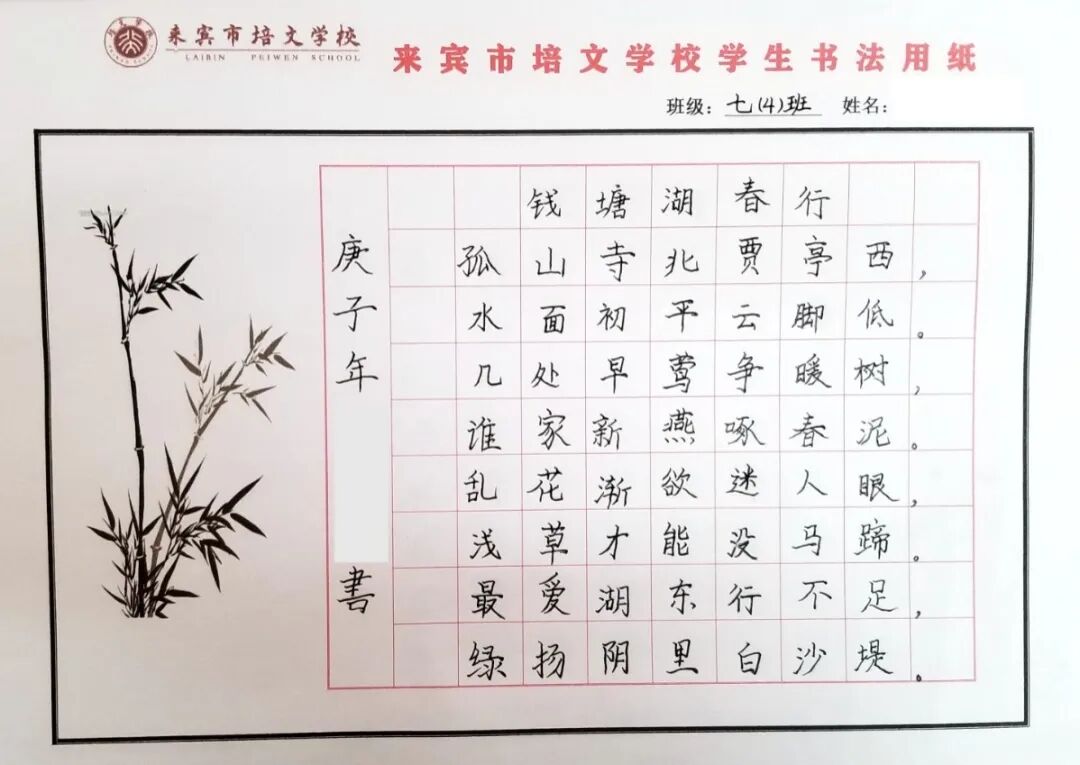 来宾市培文学校
LAIBIN PEIWEN SCHOOL
来宾市培文学校学生书法用纸
班级：七(4)班 姓名：
钱塘湖春行
孤山寺北贾亭西，
水面初平云脚低。
几处早莺争暖树，
谁家新燕啄春泥。
乱花渐欲迷人眼，
浅草才能没马蹄。
最爱湖东行不足，
绿扬阴里白沙堤。
庚子年
書